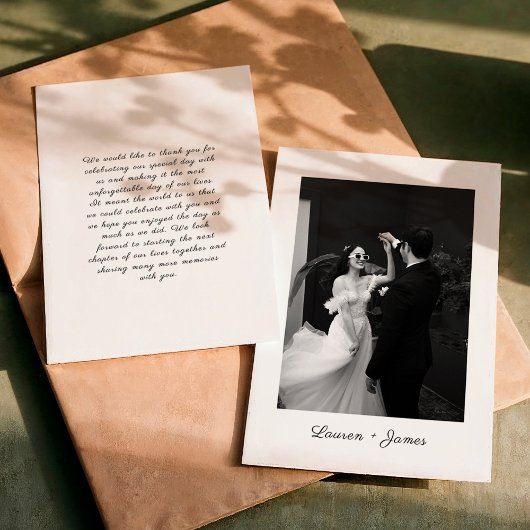 We would like to thank you for
celebrating our special day with
us and making it the most
unforgettable day of our lives.
It meant the world to us that
we could celebrate with you and
we hope you enjoyed the day as
much as we did. We look
forward to starting the next
chapter of our lives together and
sharing many more memories
with you.
Lauren + James